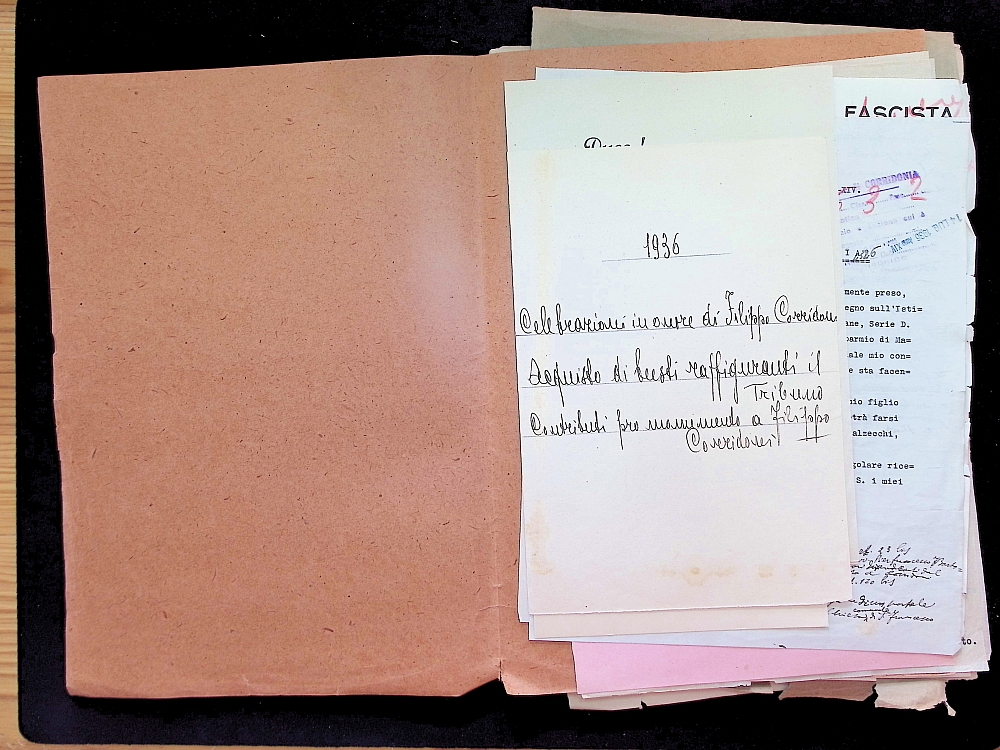 FASCISTA
Duce!
CORRIDONIA
PRIV.
2 3 2
1936
I A126
mente preso,
egno sull'Isti=
ane, Serie D.
parmio di Ma=
ale mio con=
e sta facen=
Celebrazioni in onore di Filippo Corridoni
Acquisto di busti raffiguranti il
Tribuno
Contributi pro monumento a Filippo
Corridoni
nio figlio
trà farsi
alzecchi,
golare rice=
S. i miei
to.